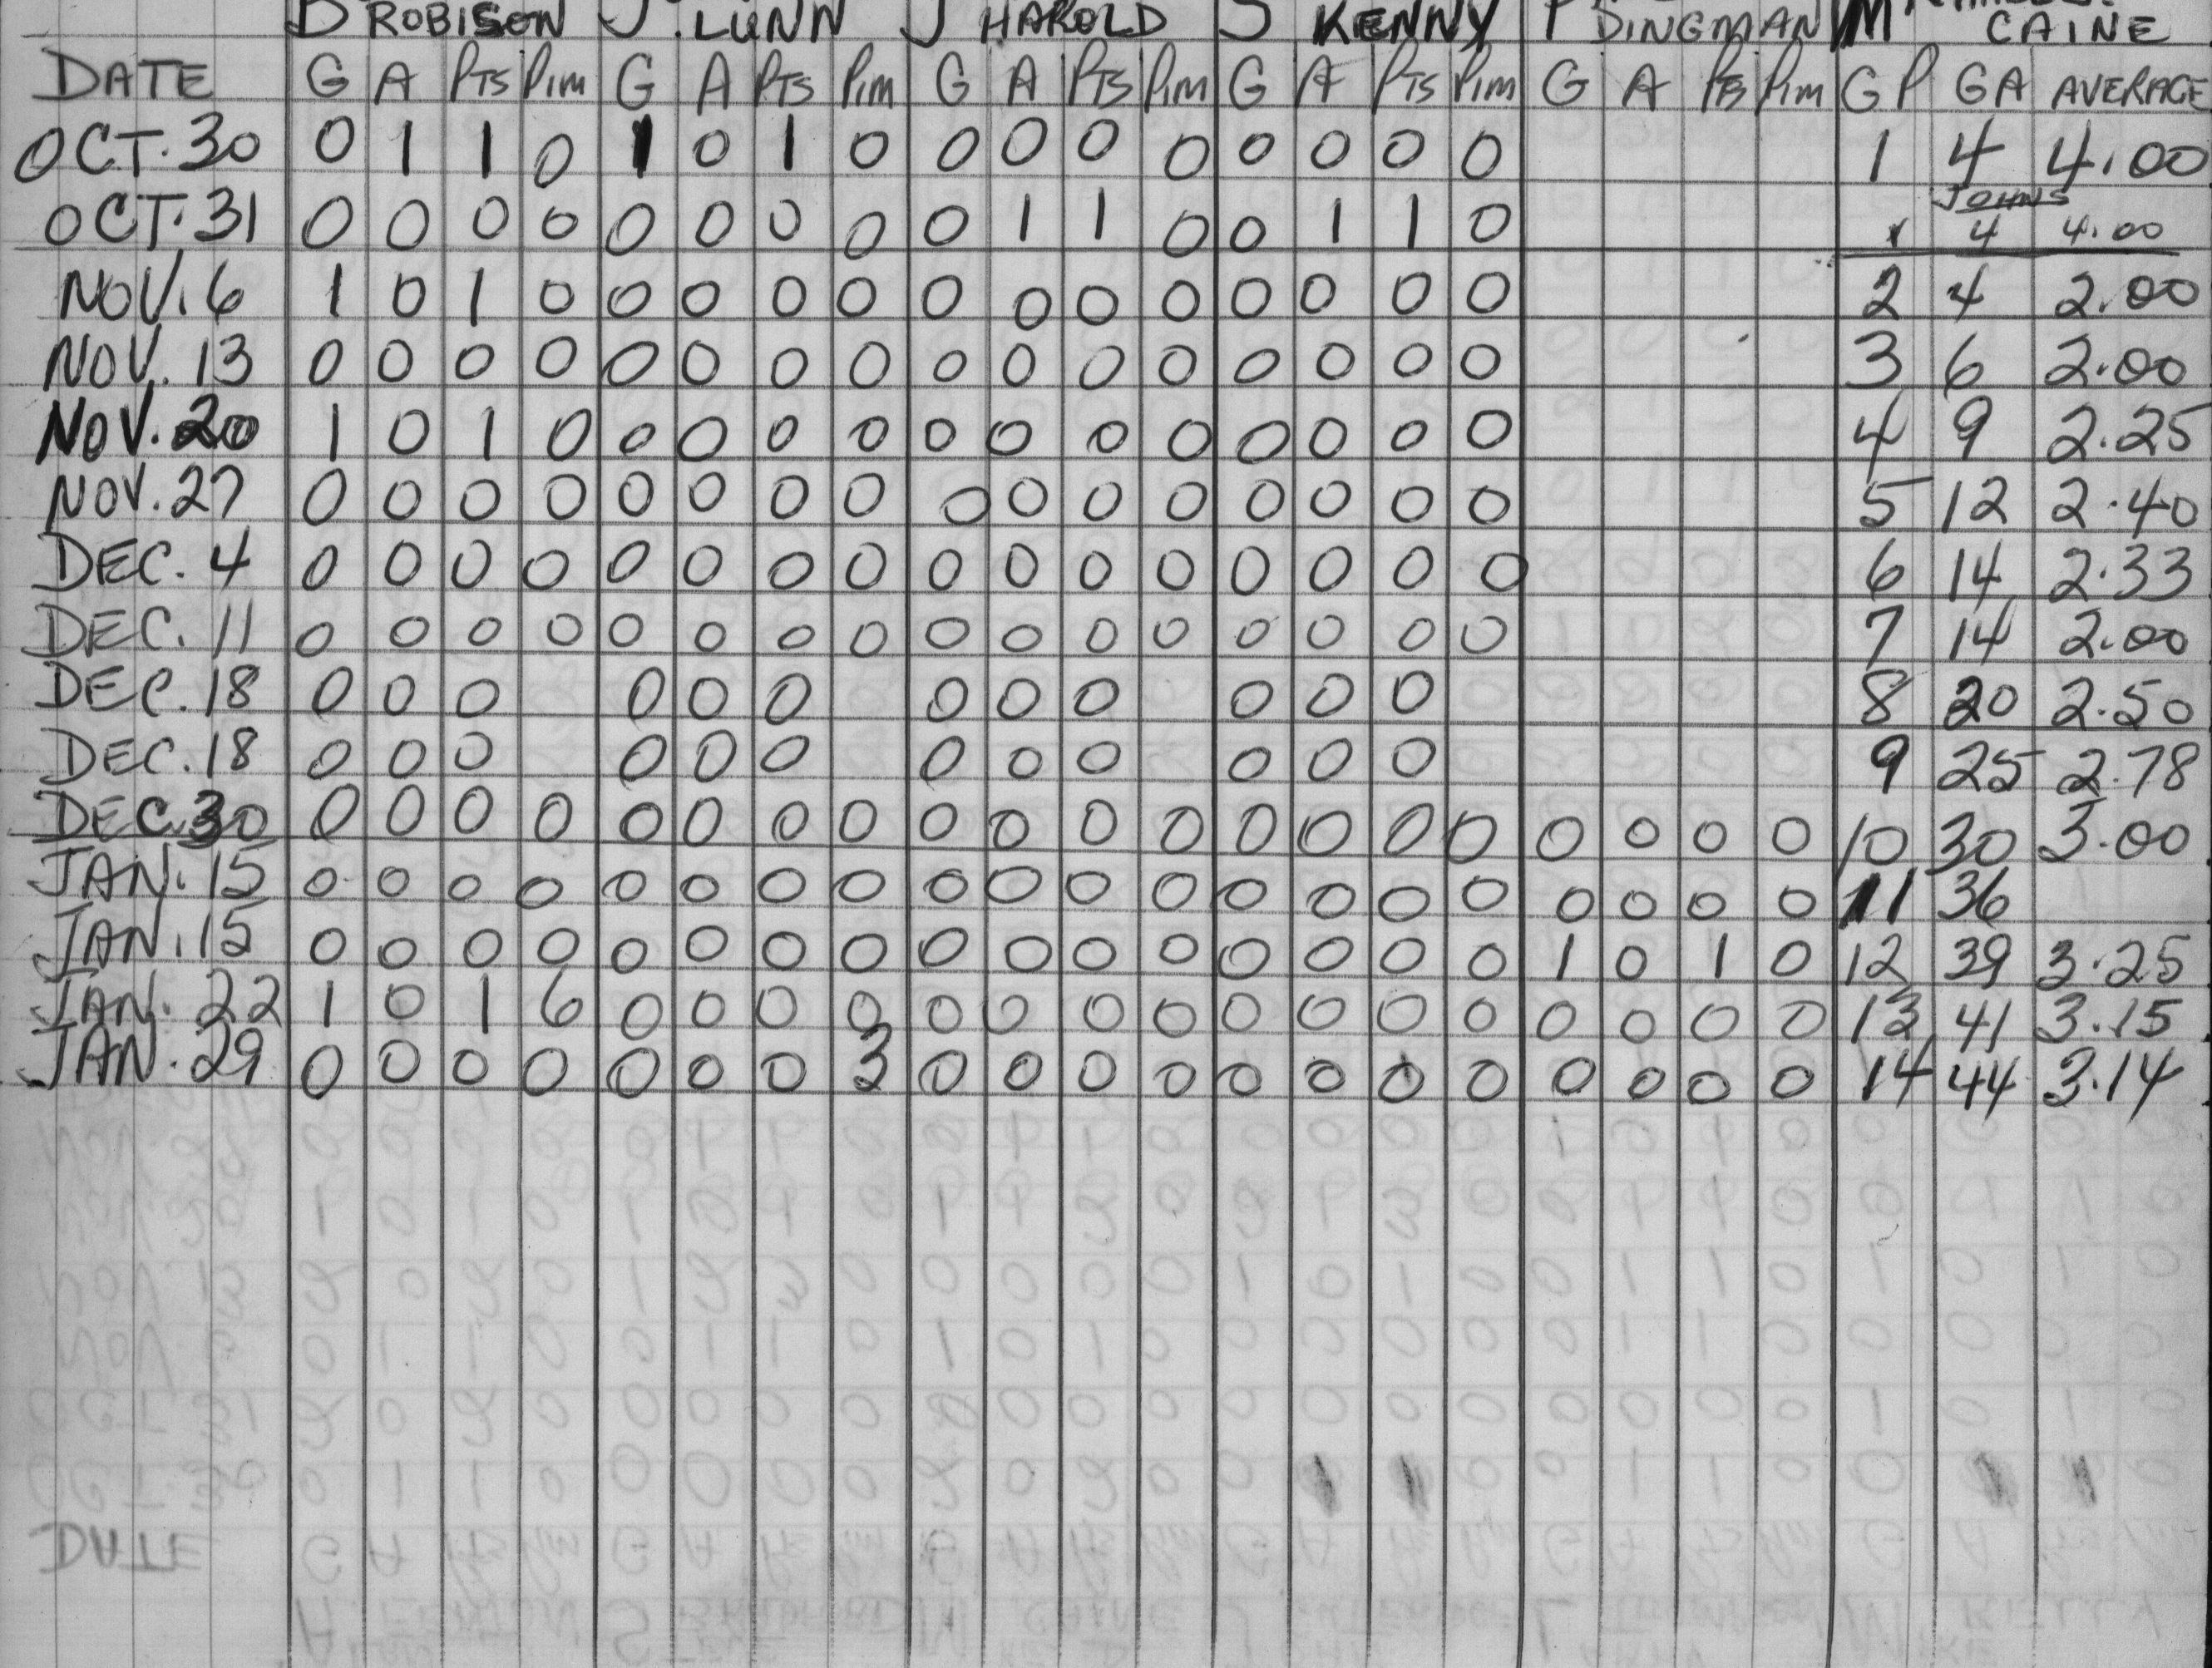 D ROBISON J. LUNN J HAROLD S KENNY P DINGMAN M CAINE
DATE G A PTS PIM G A PTS PIM G A PTS PIM G A PTS PIM G A PTS PIM GP GA AVERAGE
OCT. 30 0 1 1 0 1 0 1 0 0 0 0 0 0 0 0 0 1 4 4.00
JOHNS
OCT. 31 0 0 0 0 0 0 0 0 0 1 1 0 0 1 1 0 1 4 4.00
NOV. 6 1 0 1 0 0 0 0 0 0 0 0 0 0 0 0 0 2 4 2.00
NOV. 13 0 0 0 0 0 0 0 0 0 0 0 0 0 0 0 0 3 6 2.00
NOV. 20 1 0 1 0 0 0 0 0 0 0 0 0 0 0 0 0 4 9 2.25
NOV. 27 0 0 0 0 0 0 0 0 0 0 0 0 0 0 0 0 5 12 2.40
DEC. 4 0 0 0 0 0 0 0 0 0 0 0 0 0 0 0 0 6 14 2.33
DEC. 11 0 0 0 0 0 0 0 0 0 0 0 0 0 0 0 0 7 14 2.00
DEC. 18 0 0 0 0 0 0 0 0 0 0 0 0 8 20 2.50
DEC. 18 0 0 0 0 0 0 0 0 0 0 0 0 9 25 2.78
DEC. 30 0 0 0 0 0 0 0 0 0 0 0 0 0 0 0 0 0 0 0 0 10 30 3.00
JAN. 15 0 0 0 0 0 0 0 0 0 0 0 0 0 0 0 0 0 0 0 0 11 36
JAN. 15 0 0 0 0 0 0 0 0 0 0 0 0 0 0 0 0 1 0 1 0 12 39 3.25
JAN. 22 1 0 1 6 0 0 0 0 0 0 0 0 0 0 0 0 0 0 0 0 13 41 3.15
JAN. 29 0 0 0 0 0 0 0 3 0 0 0 0 0 0 0 0 0 0 0 0 14 44 3.14